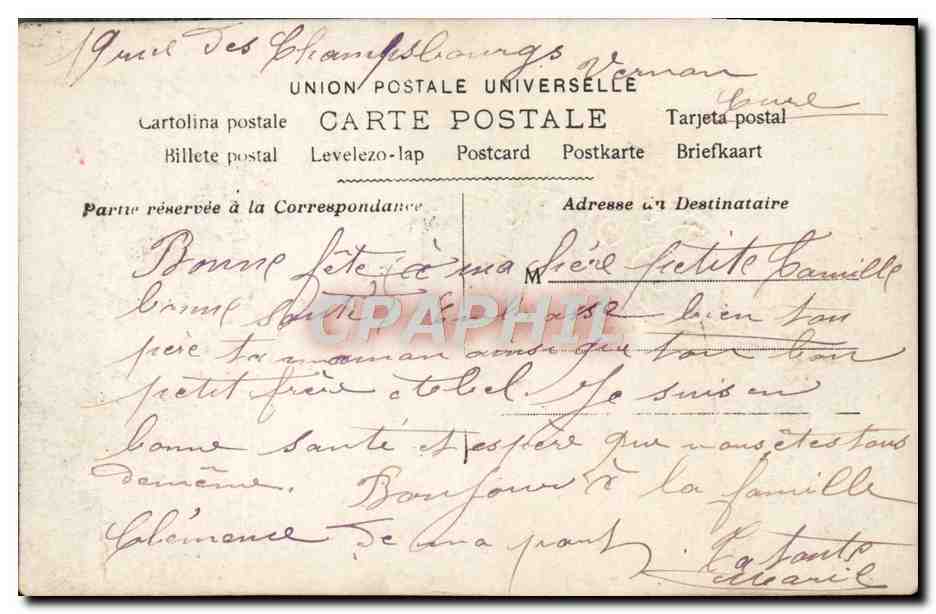 19 rue des Champsbourgs
Vernon
Eure
UNION POSTALE UNIVERSELLE
Cartolina postale CARTE POSTALE Tarjeta postal
Billete postal Levelezo-lap Postcard Postkarte Briefkaart
Partie réservée à la Correspondance
Adresse du Destinataire
M
Bonne fête à ma chère petite Camille
bonne santé Embrasse bien ton
père ta maman ainsi que ton bon
petit frère Abel. Je suis en
bonne santé et espère que vous êtes tous
de même. Bonjour à la famille
Clémence de ma part
Ta tante
Marie
CPAPHIL